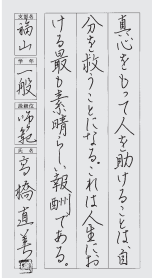 真心をもって人を助けることは、自
分を救うことになる。これは人生にお
ける最も素晴らしい報酬である。
支部名
福山
学年
一般
段級位
師範
氏名
高橋直美